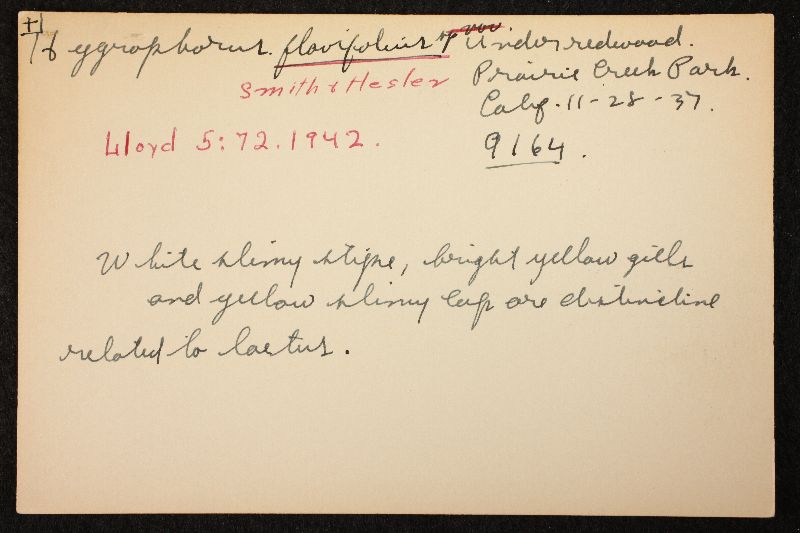 Hygrophorus. flavifolius sp nov Under redwood.
Smith & Hesler
Prairie Creek Park.
Calif. 11-28-37.
Lloyd 5:72.1942.
9164.
White slimy stipe, bright yellow gills
and yellow slimy cap are distinctive
related to laetus.